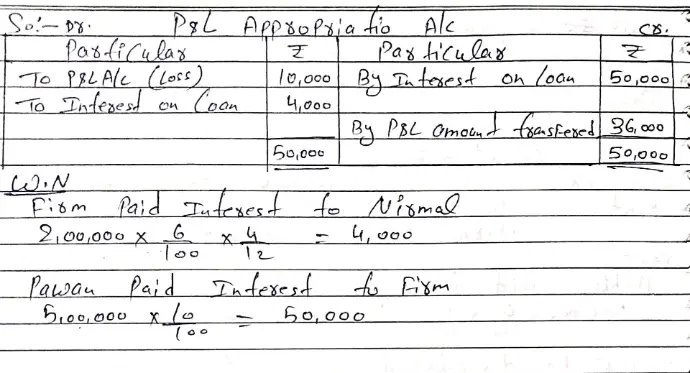 So:- Dr. P&L Appropriatio A/c Cr.
Particular ₹ Particular ₹
To P&L A/c (Loss) 10,000 By Interest on loan 50,000
To Interest on Loan 4,000
By P&L amount transfered 36,000
50,000 50,000
W.N
Firm Paid Interest to Nirmal
2,00,000 x 6/100 x 4/12 = 4,000
Pawan Paid Interest to Firm
5,00,000 x 10/100 = 50,000